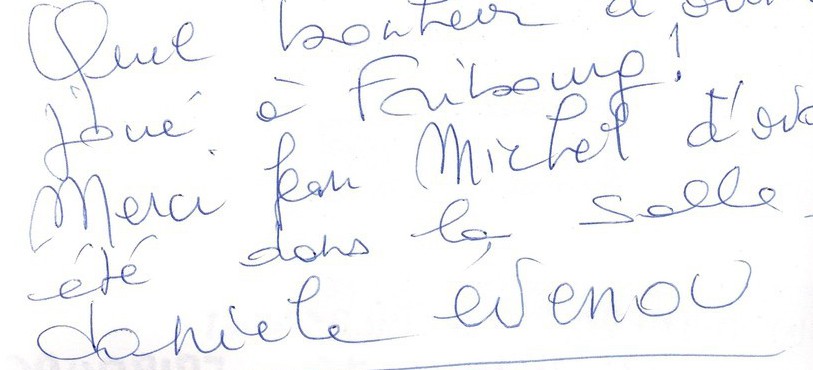 Quel bonheur d'avoi
joué à Fribourg!
Merci Jean Michel d'avo
été dans la salle
danièle évenou